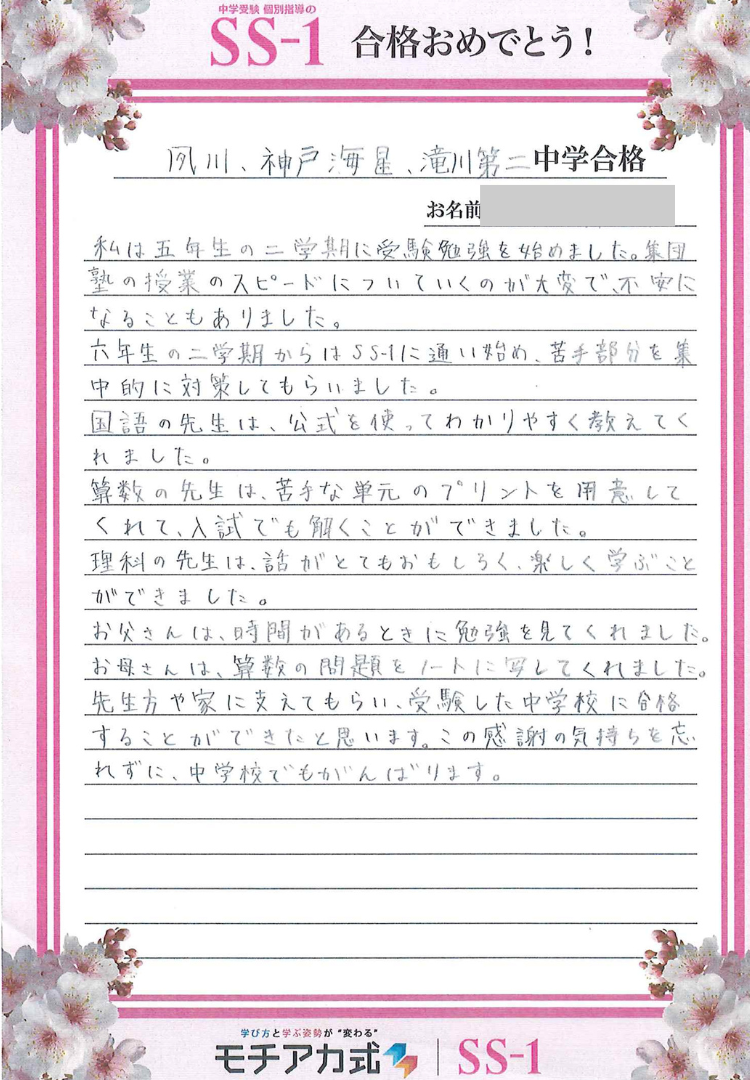 中学受験 個別指導の
SS-1 合格おめでとう!
夙川、神戸海星、滝川第二 中学合格
お名前
私は五年生の二学期に受験勉強を始めました。集団
塾の授業のスピードについていくのが大変で、不安に
なることもありました。
六年生の二学期からはSS-1に通い始め、苦手部分を集
中的に対策してもらいました。
国語の先生は、公式を使ってわかりやすく教えてく
れました。
算数の先生は、苦手な単元のプリントを用意して
くれて、入試でも解くことができました。
理科の先生は、話がとてもおもしろく、楽しく学ぶこと
ができました。
お父さんは、時間があるときに勉強を見てくれました。
お母さんは、算数の問題をノートに写してくれました。
先生方や家に支えてもらい、受験した中学校に合格
することができたと思います。この感謝の気持ちを忘
れずに、中学校でもがんばります。
学び方と学ぶ姿勢が"変わる"
モチアカ式 SS-1